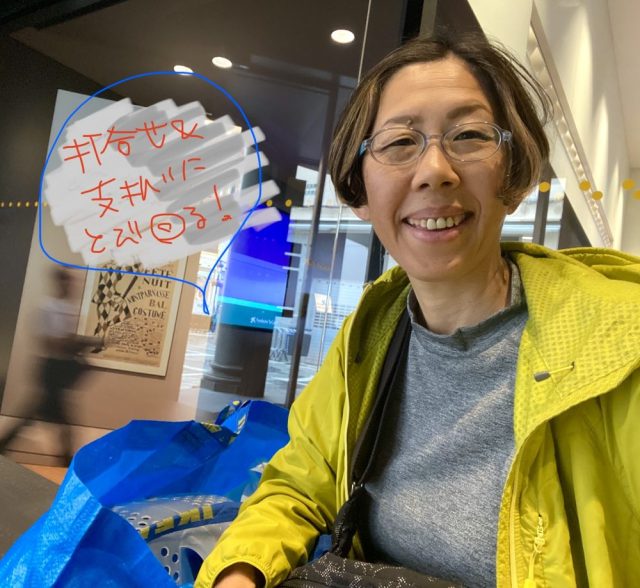 打合せ&
支払いに
とび回る!
FÊTE
NUIT
MONTPARNASSE
BAL
COSTUMÉ
IKEA